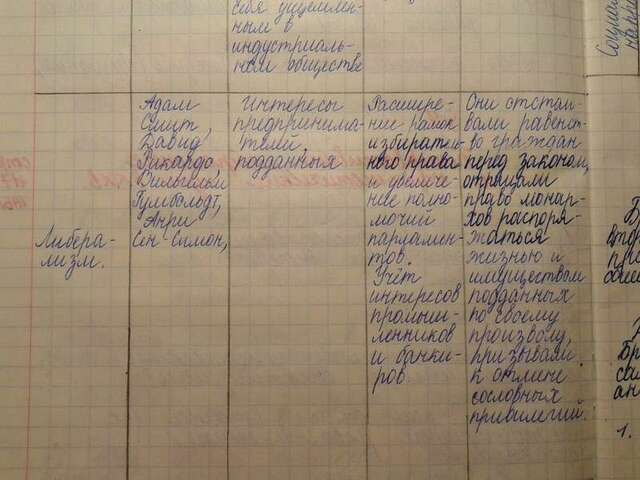 себя ущемлен-
ным в
индустриаль-
ном обществе
Либера-
лизм.
Адам
Смит,
Давид
Рикардо,
Вильгельм
Гумбольдт,
Анри
Сен-Симон,
Интересы
предпринима-
телей,
подданных
Расшире-
ние рамок
избиратель-
ного права
и увеличе-
ние полно-
мочий
парламен-
тов.
Учёт
интересов
промыш-
ленников
и банки-
ров.
Они отстаи-
вали равенст-
во граждан
перед законом,
отрицали
право монар-
хов распоря-
жаться
жизнью и
имуществом
подданных
по своему
произволу,
призывали
к отмене
сословных
привилегий.
1.